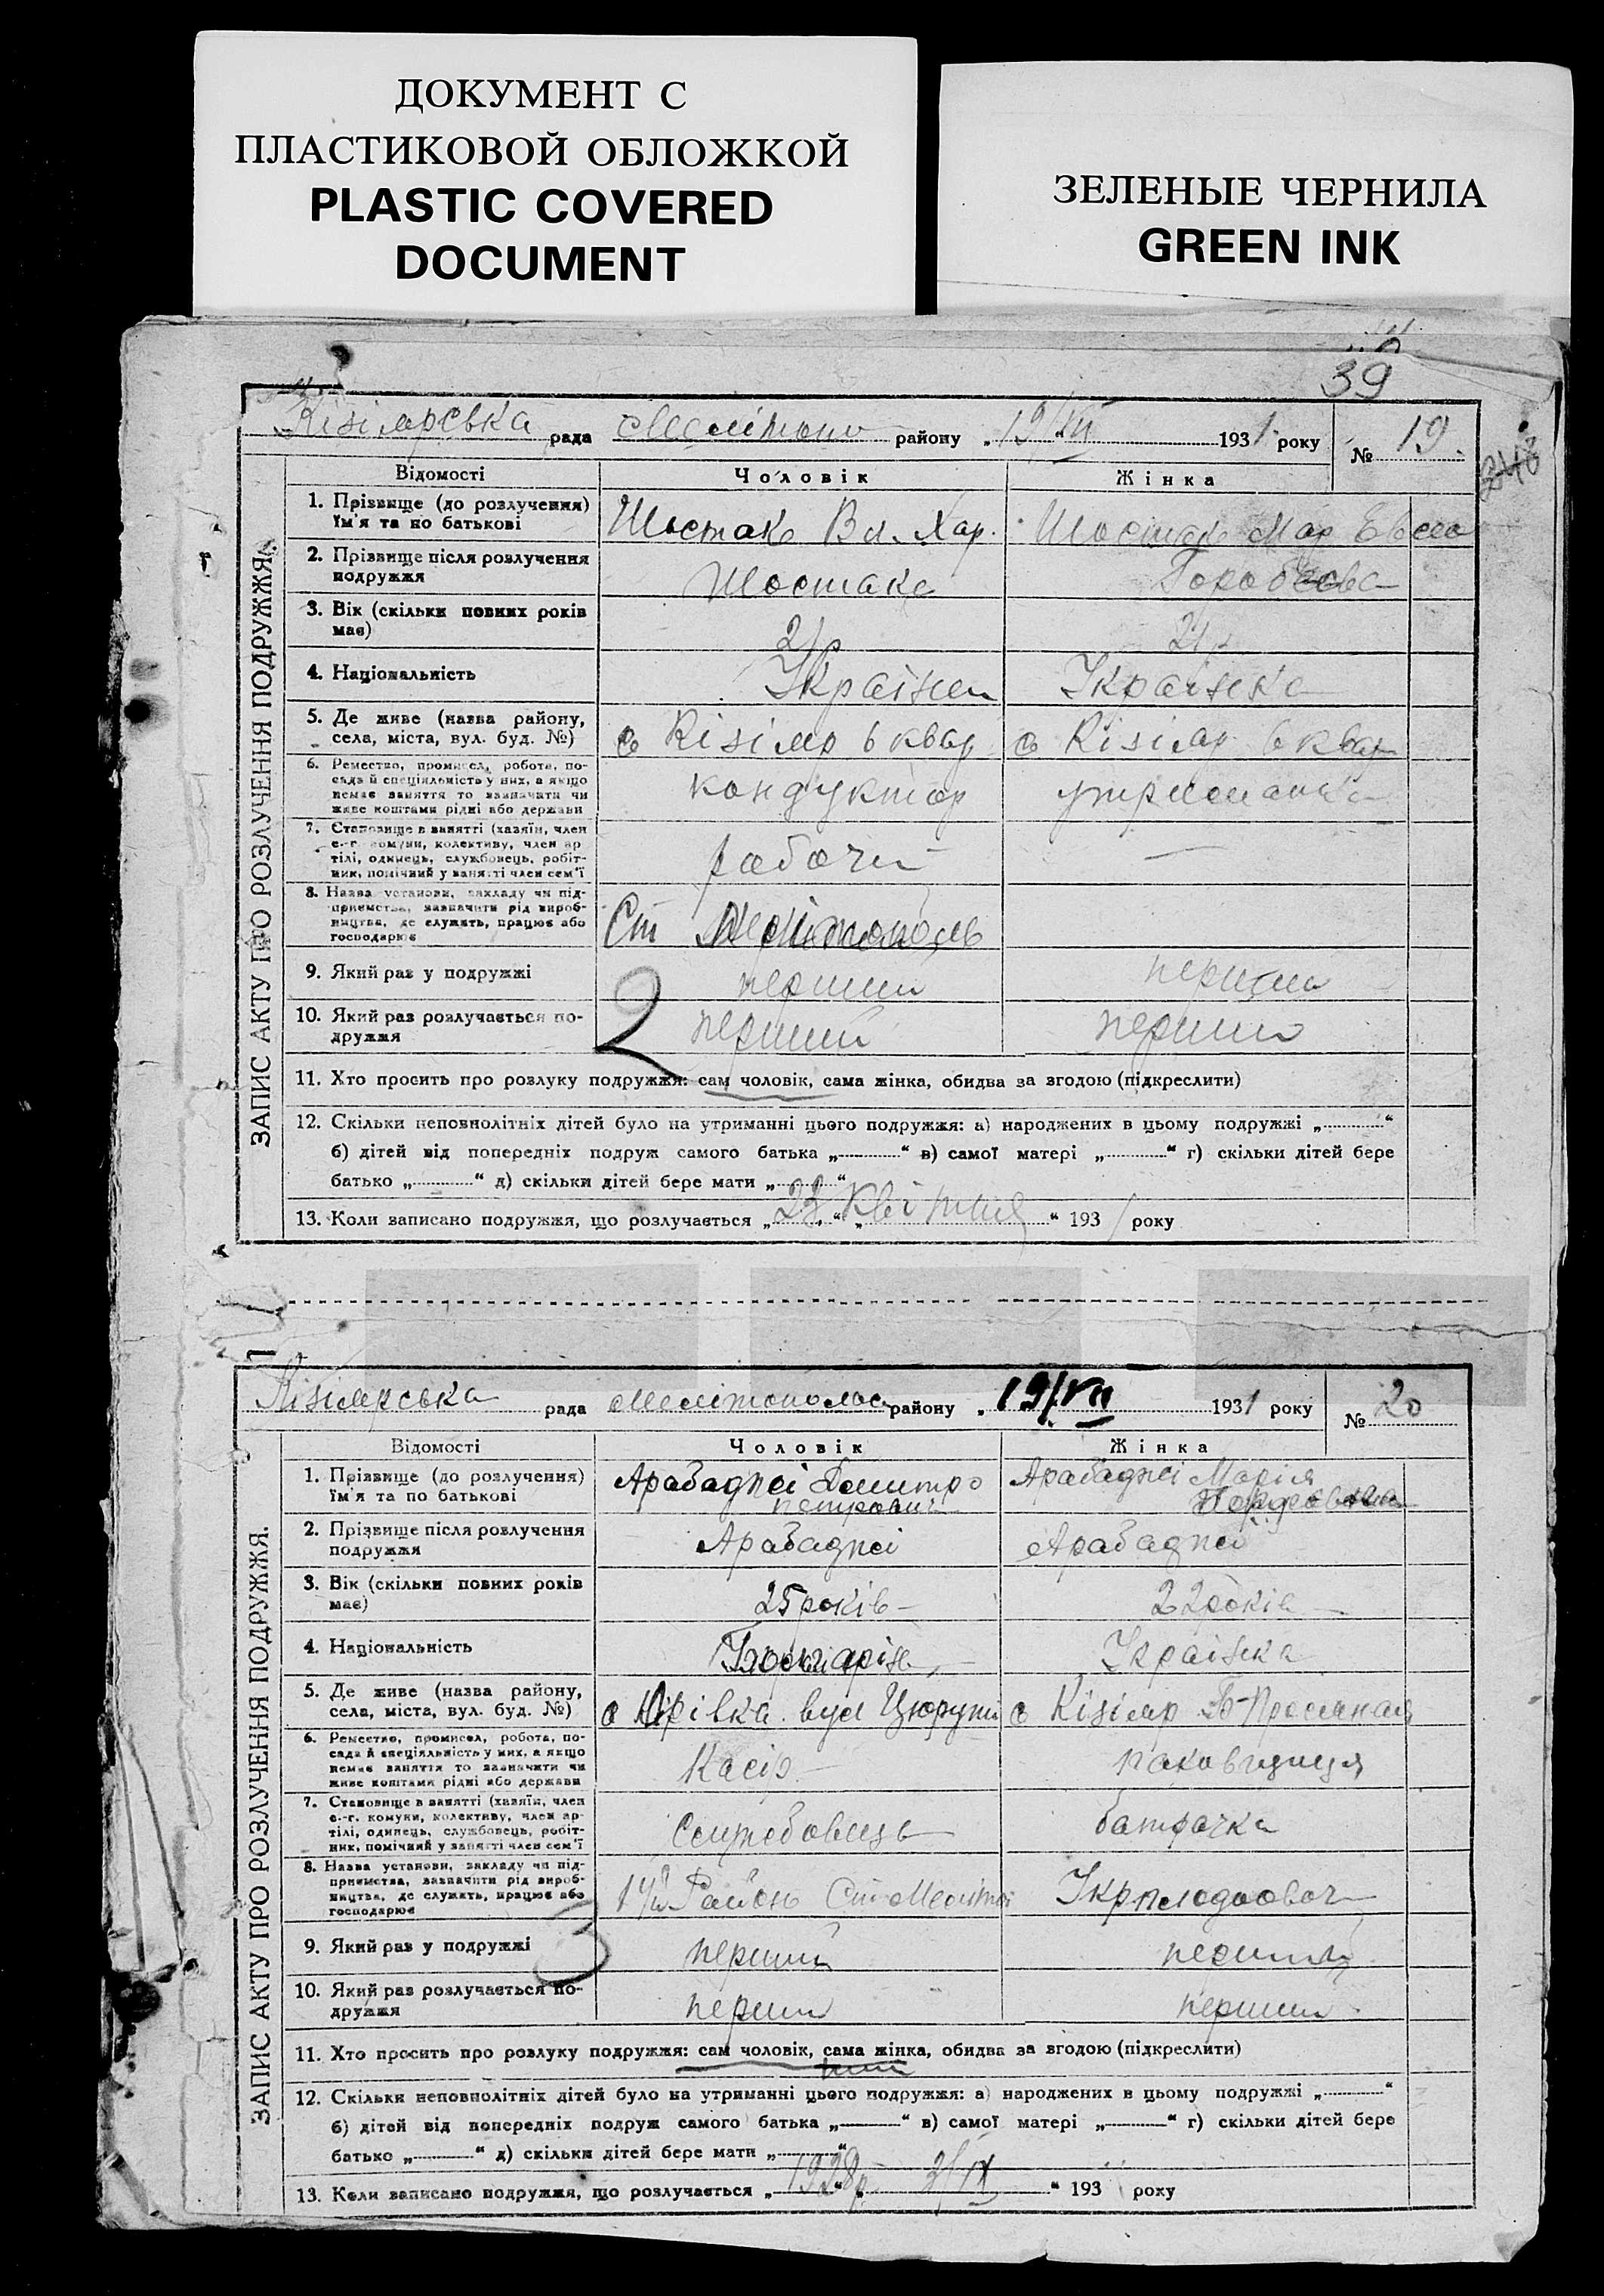 ДОКУМЕНТ С
ПЛАСТИКОВОЙ ОБЛОЖКОЙ
PLASTIC COVERED
DOCUMENT
ЗЕЛЕНЫЕ ЧЕРНИЛА
GREEN INK
39
Кізілярська рада Мелітопо району „ 19/VII 1931 року № 19.
ЗАПИС АКТУ ПРО РОЗЛУЧЕННЯ ПОДРУЖЖЯ.
Відомості Чоловік Жінка
1. Прізвище (до розлучення) Шостак Вл. Хар. Шостак Мар
ім'я та по батькові
2. Прізвище після розлучення Шостак
подружжя
3. Вік (скільки повних років 21р 21р
має)
4. Національність Українец Українка
5. Де живе (назва району, с Кізіляр 6 квар с Кізіляр 6 квар
села, міста, вул. буд. №)
6. Ремество, промисел, робота, по- кондуктор утриманка
сада й спеціяльність у них, а якщо
немає заняття то зазначити чи
живе коштами рідні або держави
7. Становище в занятті (хазяїн, член рабочий —
с.-г. комуни, колективу, член ар-
тілі, одинець, службовець, робіт-
ник, помічний у занятті член сем'ї
8. Назва установи, закладу чи під- Ст Мелітополь
приємства, зазначити рід вироб-
ництва, де служить, працює або
господарює
9. Який раз у подружжі перший перший
10. Який раз розлучається по- 2 перший перший
дружжя
11. Хто просить про розлуку подружжя: сам чоловік, сама жінка, обидва за згодою (підкреслити)
12. Скільки неповнолітніх дітей було на утриманні цього подружжя: а) народжених в цьому подружжі „ “
б) дітей від попередніх подруж самого батька „ “ в) самої матері „ “ г) скільки дітей бере
батько „ “ д) скільки дітей бере мати „ “
13. Коли записано подружжя, що розлучається „ 23 “ „ Квітня “ 1931 року
Кізілярська рада Мелітополос району „ 19/VII 1931 року № 20
ЗАПИС АКТУ ПРО РОЗЛУЧЕННЯ ПОДРУЖЖЯ.
Відомості Чоловік Жінка
1. Прізвище (до розлучення) Арабаджі Дмитро Арабаджі Марія
ім'я та по батькові петрович
2. Прізвище після розлучення Арабаджі Арабаджі
подружжя
3. Вік (скільки повних років 25 років 22 років
має)
4. Національність Українка
5. Де живе (назва району, с Юрівка вул Цюрупи с Кізіляр
села, міста, вул. буд. №)
6. Ремество, промисел, робота, по- Касір паковщиця
сада й спеціяльність у них, а якщо
немає заняття то зазначити чи
живе коштами рідні або держави
7. Становище в занятті (хазяїн, член Службовець батрачка
с.-г. комуни, колективу, член ар-
тілі, одинець, службовець, робіт-
ник, помічний у занятті член сем'ї
8. Назва установи, закладу чи під- Район Ст Меліто Укрплодоовоч
приємства, зазначити рід вироб-
ництва, де служить, працює або
господарює
9. Який раз у подружжі 3 перший перший
10. Який раз розлучається по- перший перший
дружжя
11. Хто просить про розлуку подружжя: сам чоловік, сама жінка, обидва за згодою (підкреслити)
12. Скільки неповнолітніх дітей було на утриманні цього подружжя: а) народжених в цьому подружжі „ “
б) дітей від попередніх подруж самого батька „ “ в) самої матері „ “ г) скільки дітей бере
батько „ “ д) скільки дітей бере мати „ “
13. Коли записано подружжя, що розлучається „ 1928р 3/IX “ 193 року